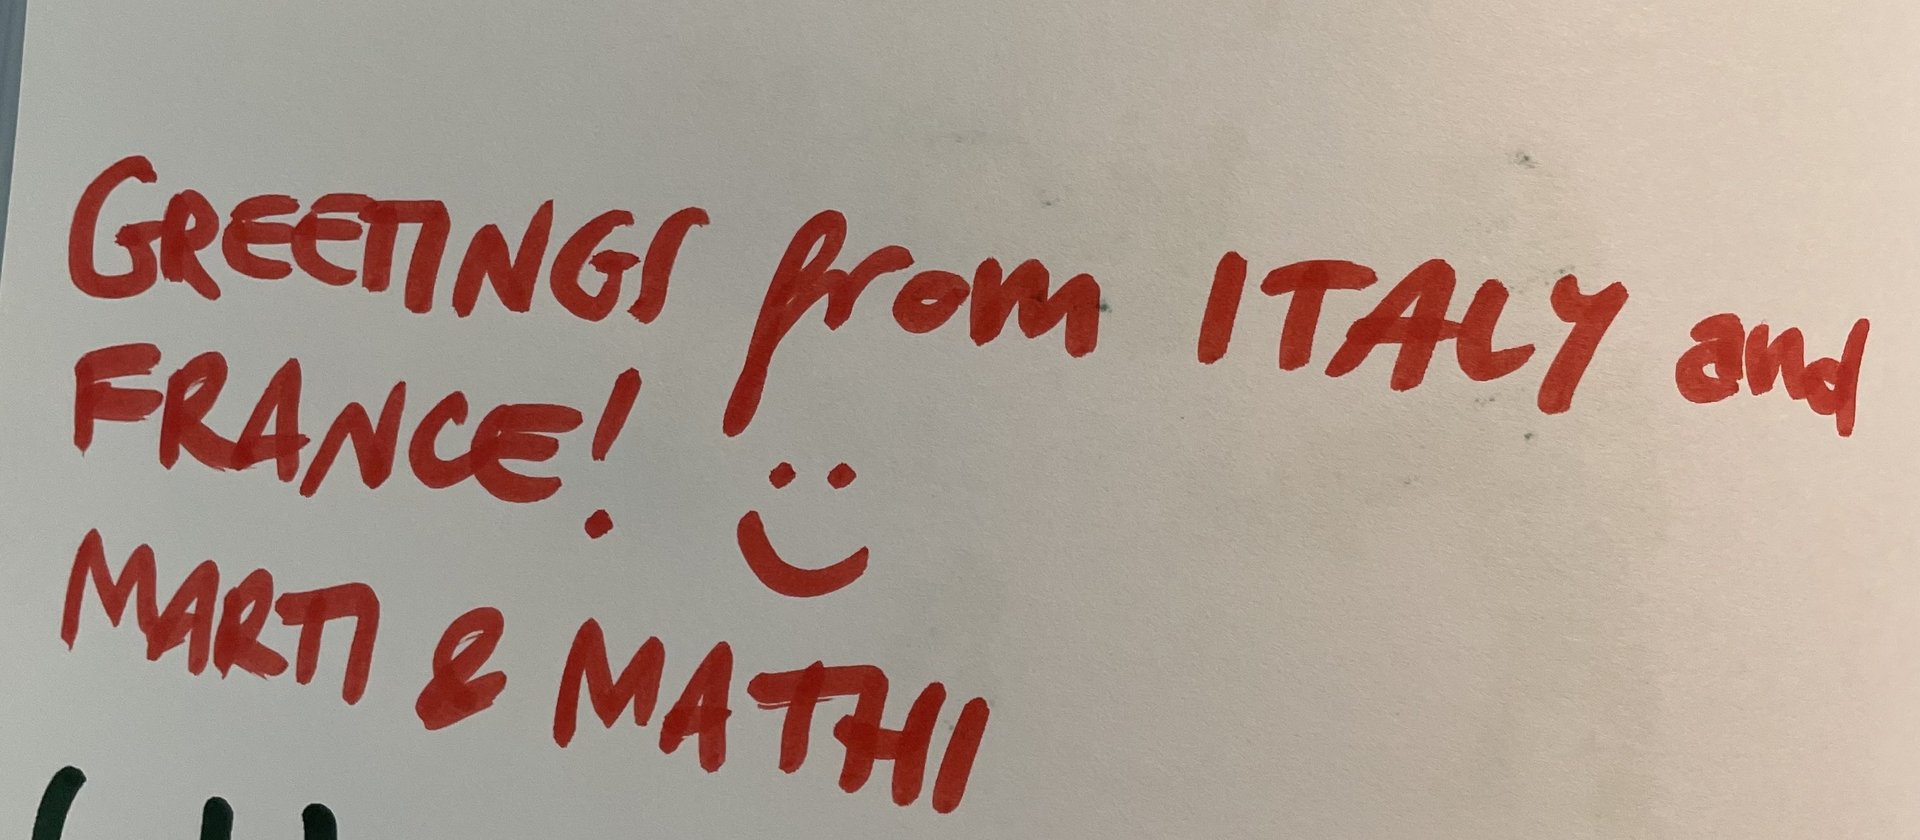 GREETINGS from ITALY and
FRANCE! :)
MARTI & MATHI